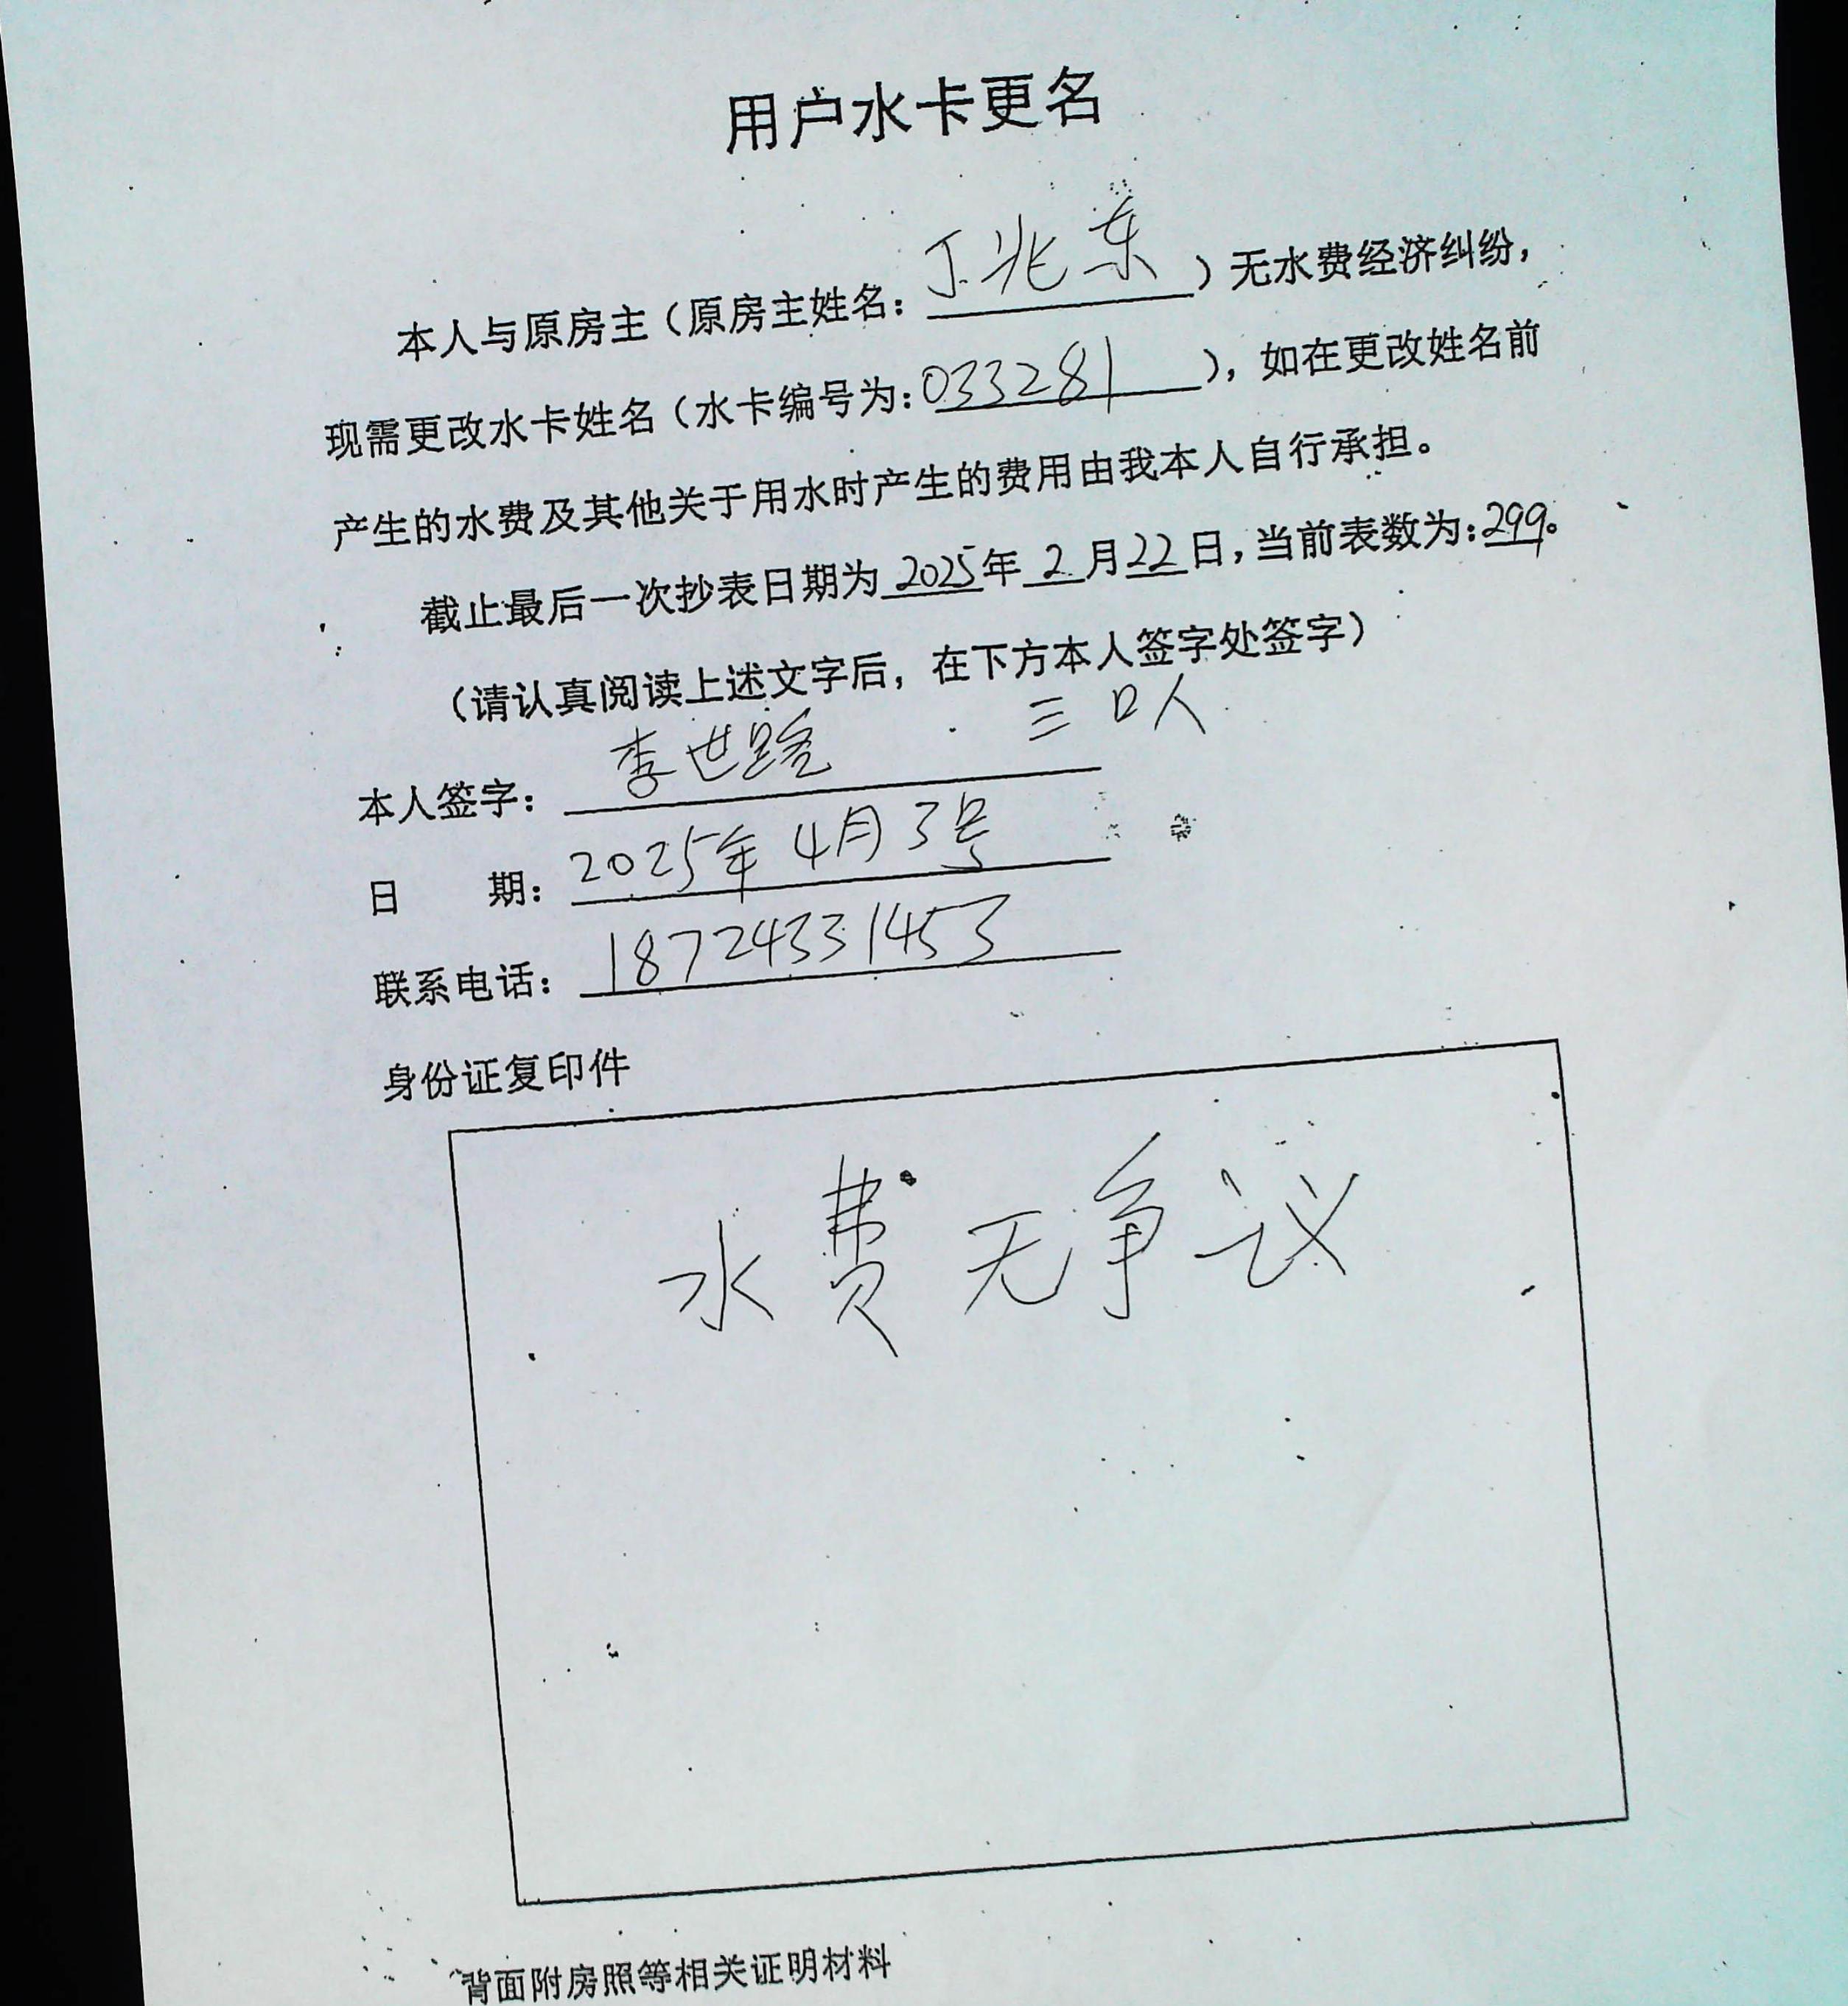 用户水卡更名
本人与原房主（原房主姓名：丁兆东）无水费经济纠纷，
现需更改水卡姓名（水卡编号为：033281），如在更改姓名前
产生的水费及其他关于用水时产生的费用由我本人自行承担。
截止最后一次抄表日期为2025年2月22日，当前表数为：299。
（请认真阅读上述文字后，在下方本人签字处签字）
三口人
本人签字：李世
日 期：2025年4月3号
联系电话：18724331453
身份证复印件
水费无争议
背面附房照等相关证明材料